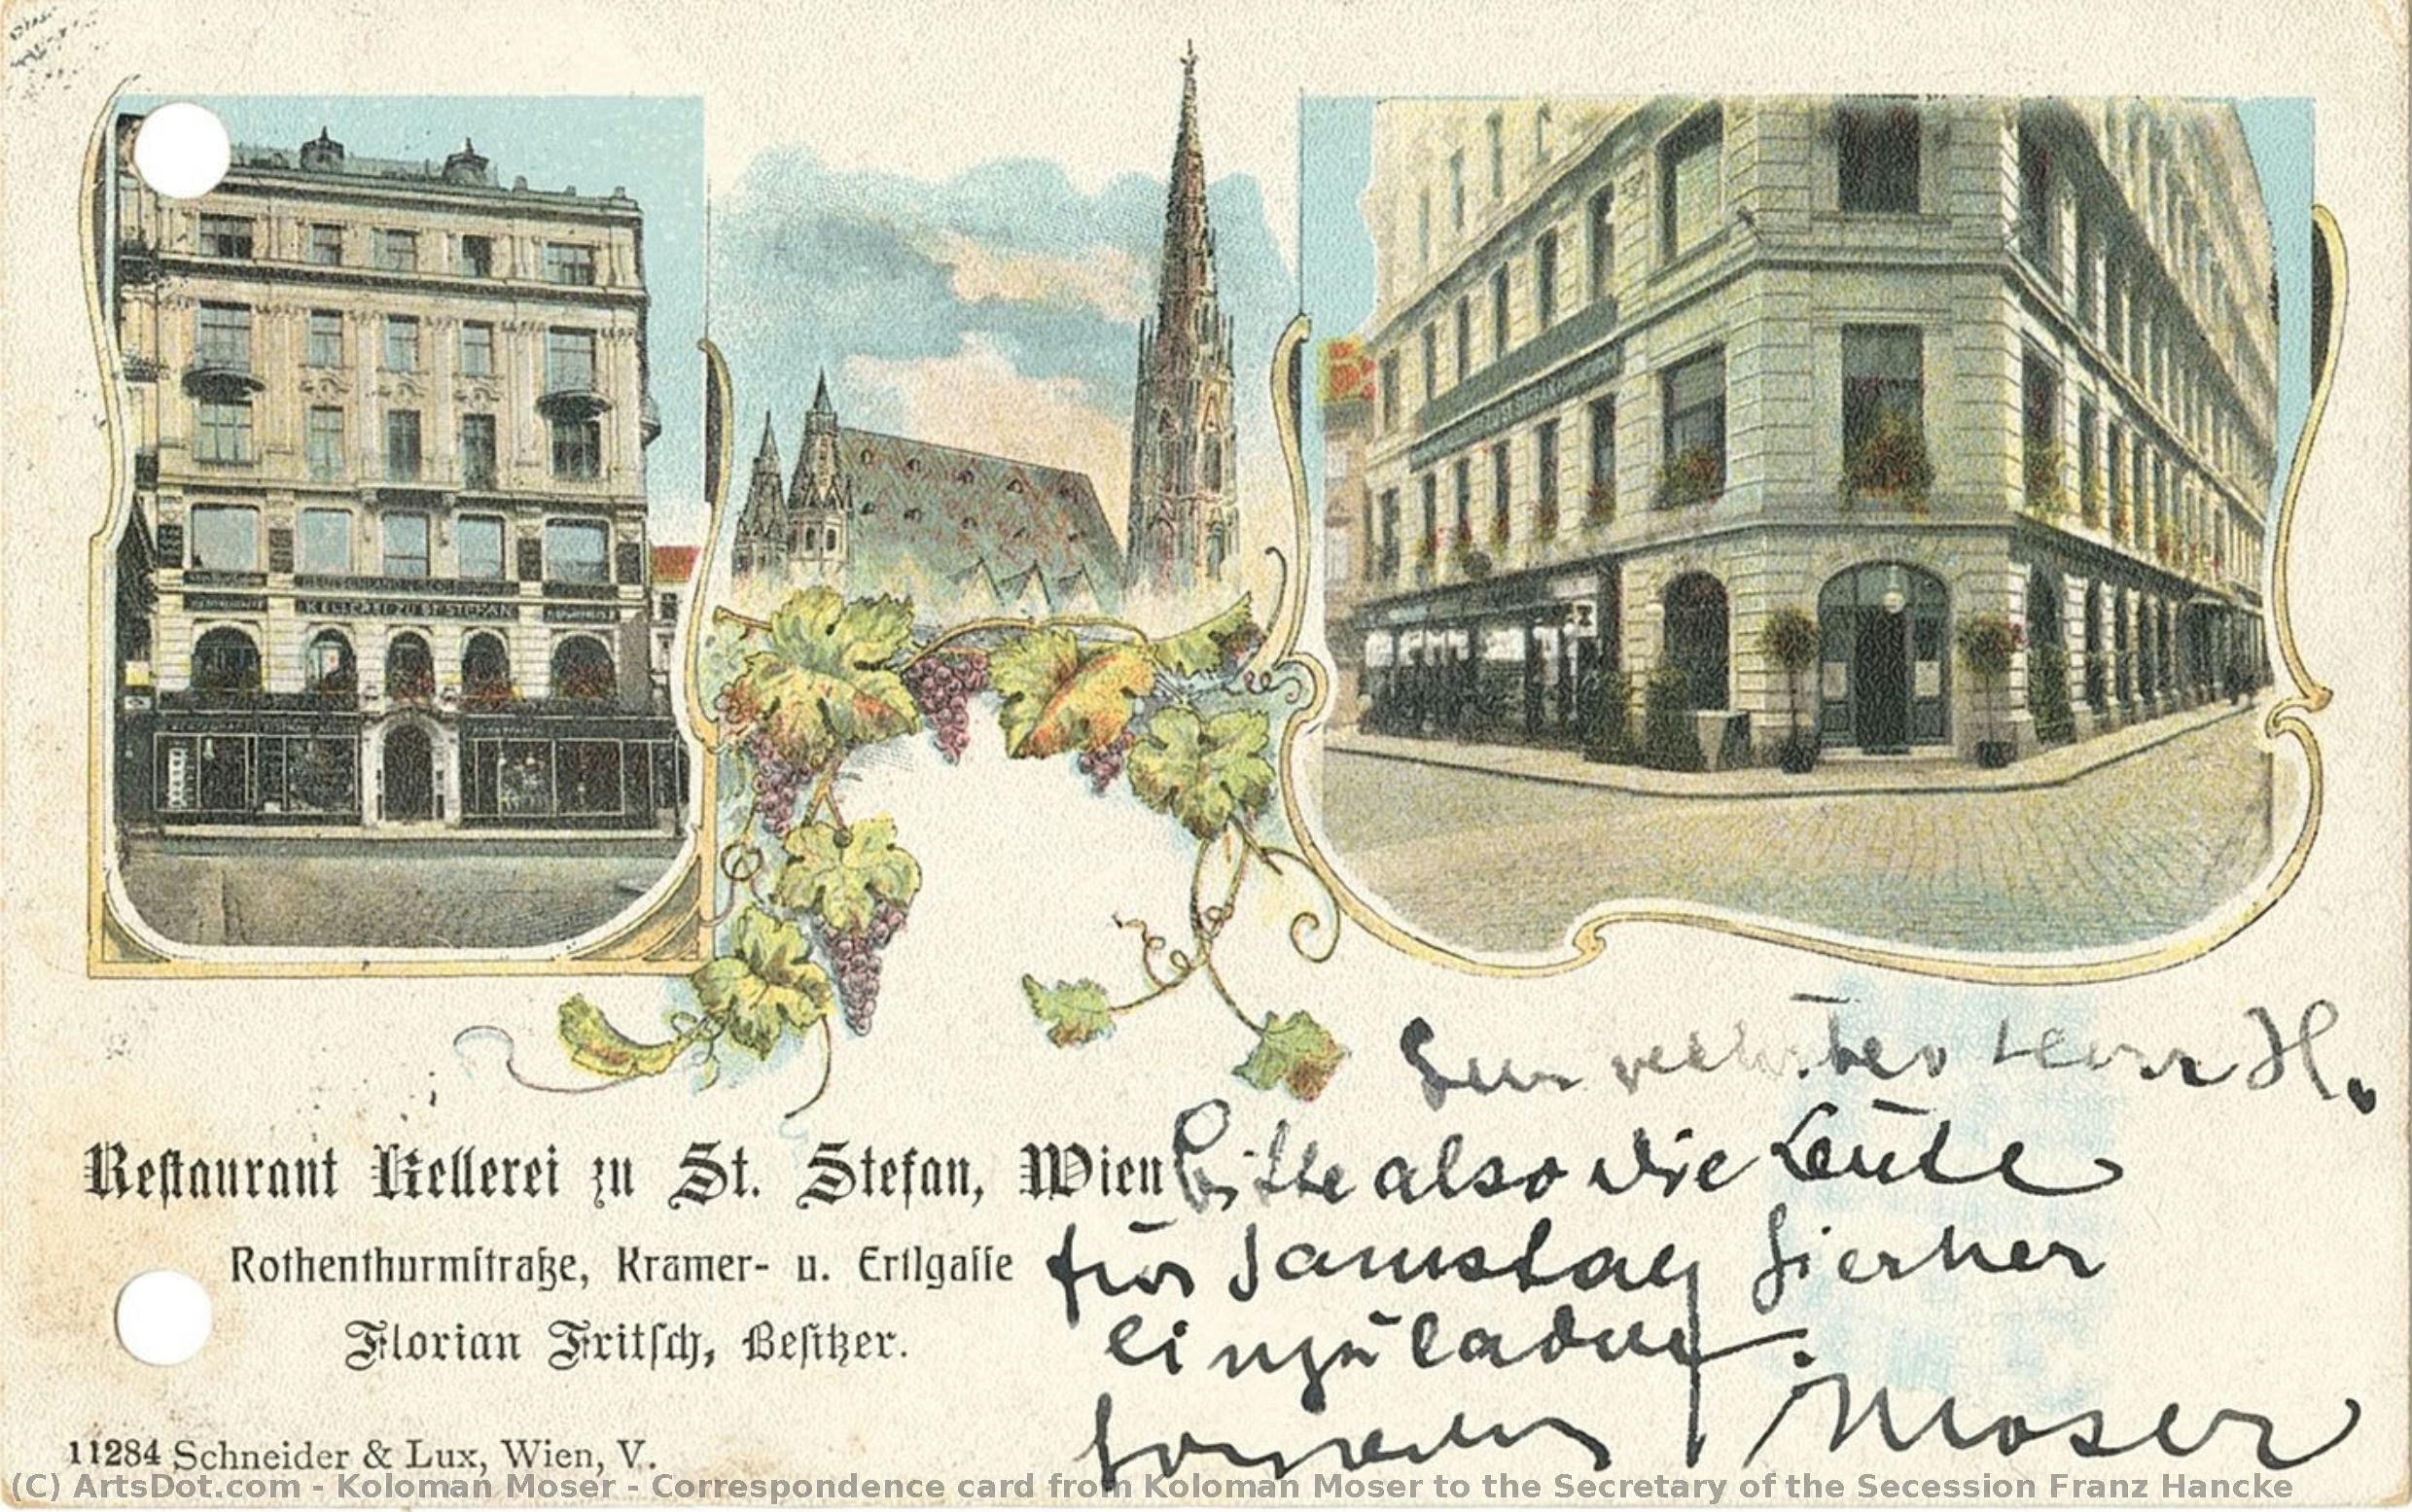 KELLEREI ZU ST. STEFAN
Restaurant Kellerei zu St. Stefan, Wien
Rothenthurmstraße, Kramer- u. Ertlgasse
Florian Fritsch, Besitzer.
11284 Schneider & Lux, Wien, V.
H.
Bitte also die Leute
für Samstag hierher
einzuladen.
Moser
(C) ArtsDot.com - Koloman Moser - Correspondence card from Koloman Moser to the Secretary of the Secession Franz Hancke